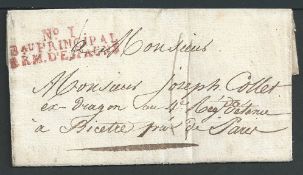 No I
Bau PRINCIPAL
ARM. D'ESPAGNE
à Monsieur
Monsieur Joseph Collet
ex-dragon au 4e Regt
à Bicetre près de Paris